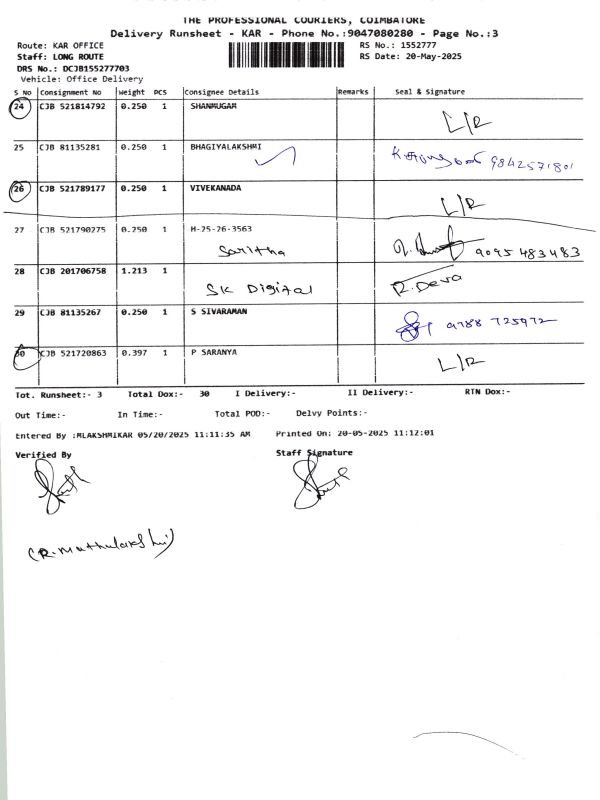 THE PROFESSIONAL COURIERS, COIMBATORE
Delivery Runsheet - KAR - Phone No.:9047080280 - Page No.:3
Route: KAR OFFICE RS No.: 1552777
Staff: LONG ROUTE RS Date: 20-May-2025
DRS No.: DCJB155277703
Vehicle: Office Delivery
S No Consignment No Weight PCS Consignee Details Remarks Seal & Signature
24 CJB 521814792 0.250 1 SHANMUGAM L/R
25 CJB 81135281 0.250 1 BHAGIYALAKSHMI 9842571801
26 CJB 521789177 0.250 1 VIVEKANADA L/R
27 CJB 521790275 0.250 1 M-25-26-3563
Saritha 9095483483
28 CJB 201706758 1.213 1 R.Deva
SK Digital
29 CJB 81135267 0.250 1 S SIVARAMAN 9788 725972
30 CJB 521720863 0.397 1 P SARANYA L/R
Tot. Runsheet:- 3 Total Dox:- 30 I Delivery:- II Delivery:- RTN Dox:-
Out Time:- In Time:- Total POD:- Delvy Points:-
Entered By :MLAKSHMIKAR 05/20/2025 11:11:35 AM Printed On: 20-05-2025 11:12:01
Verified By Staff Signature
(R.Muthulakshmi)